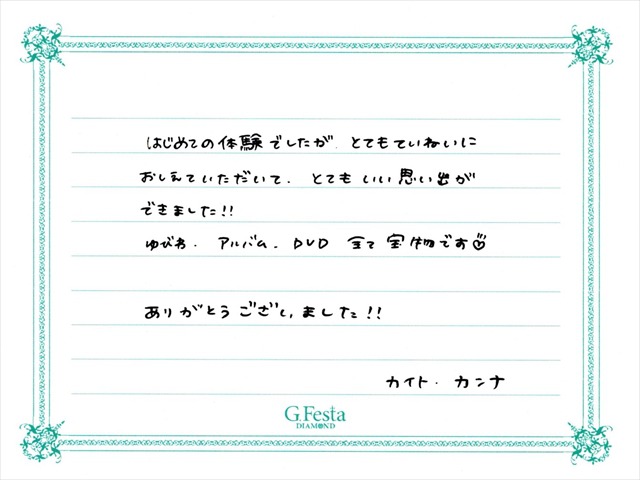 はじめての体験でしたが、とてもていねいに
おしえていただいて、とてもいい思い出が
できました!!
ゆびわ、アルバム、DVD 全て宝物です♡
ありがとうございました!!
カイト・カンナ
G.Festa
DIAMOND